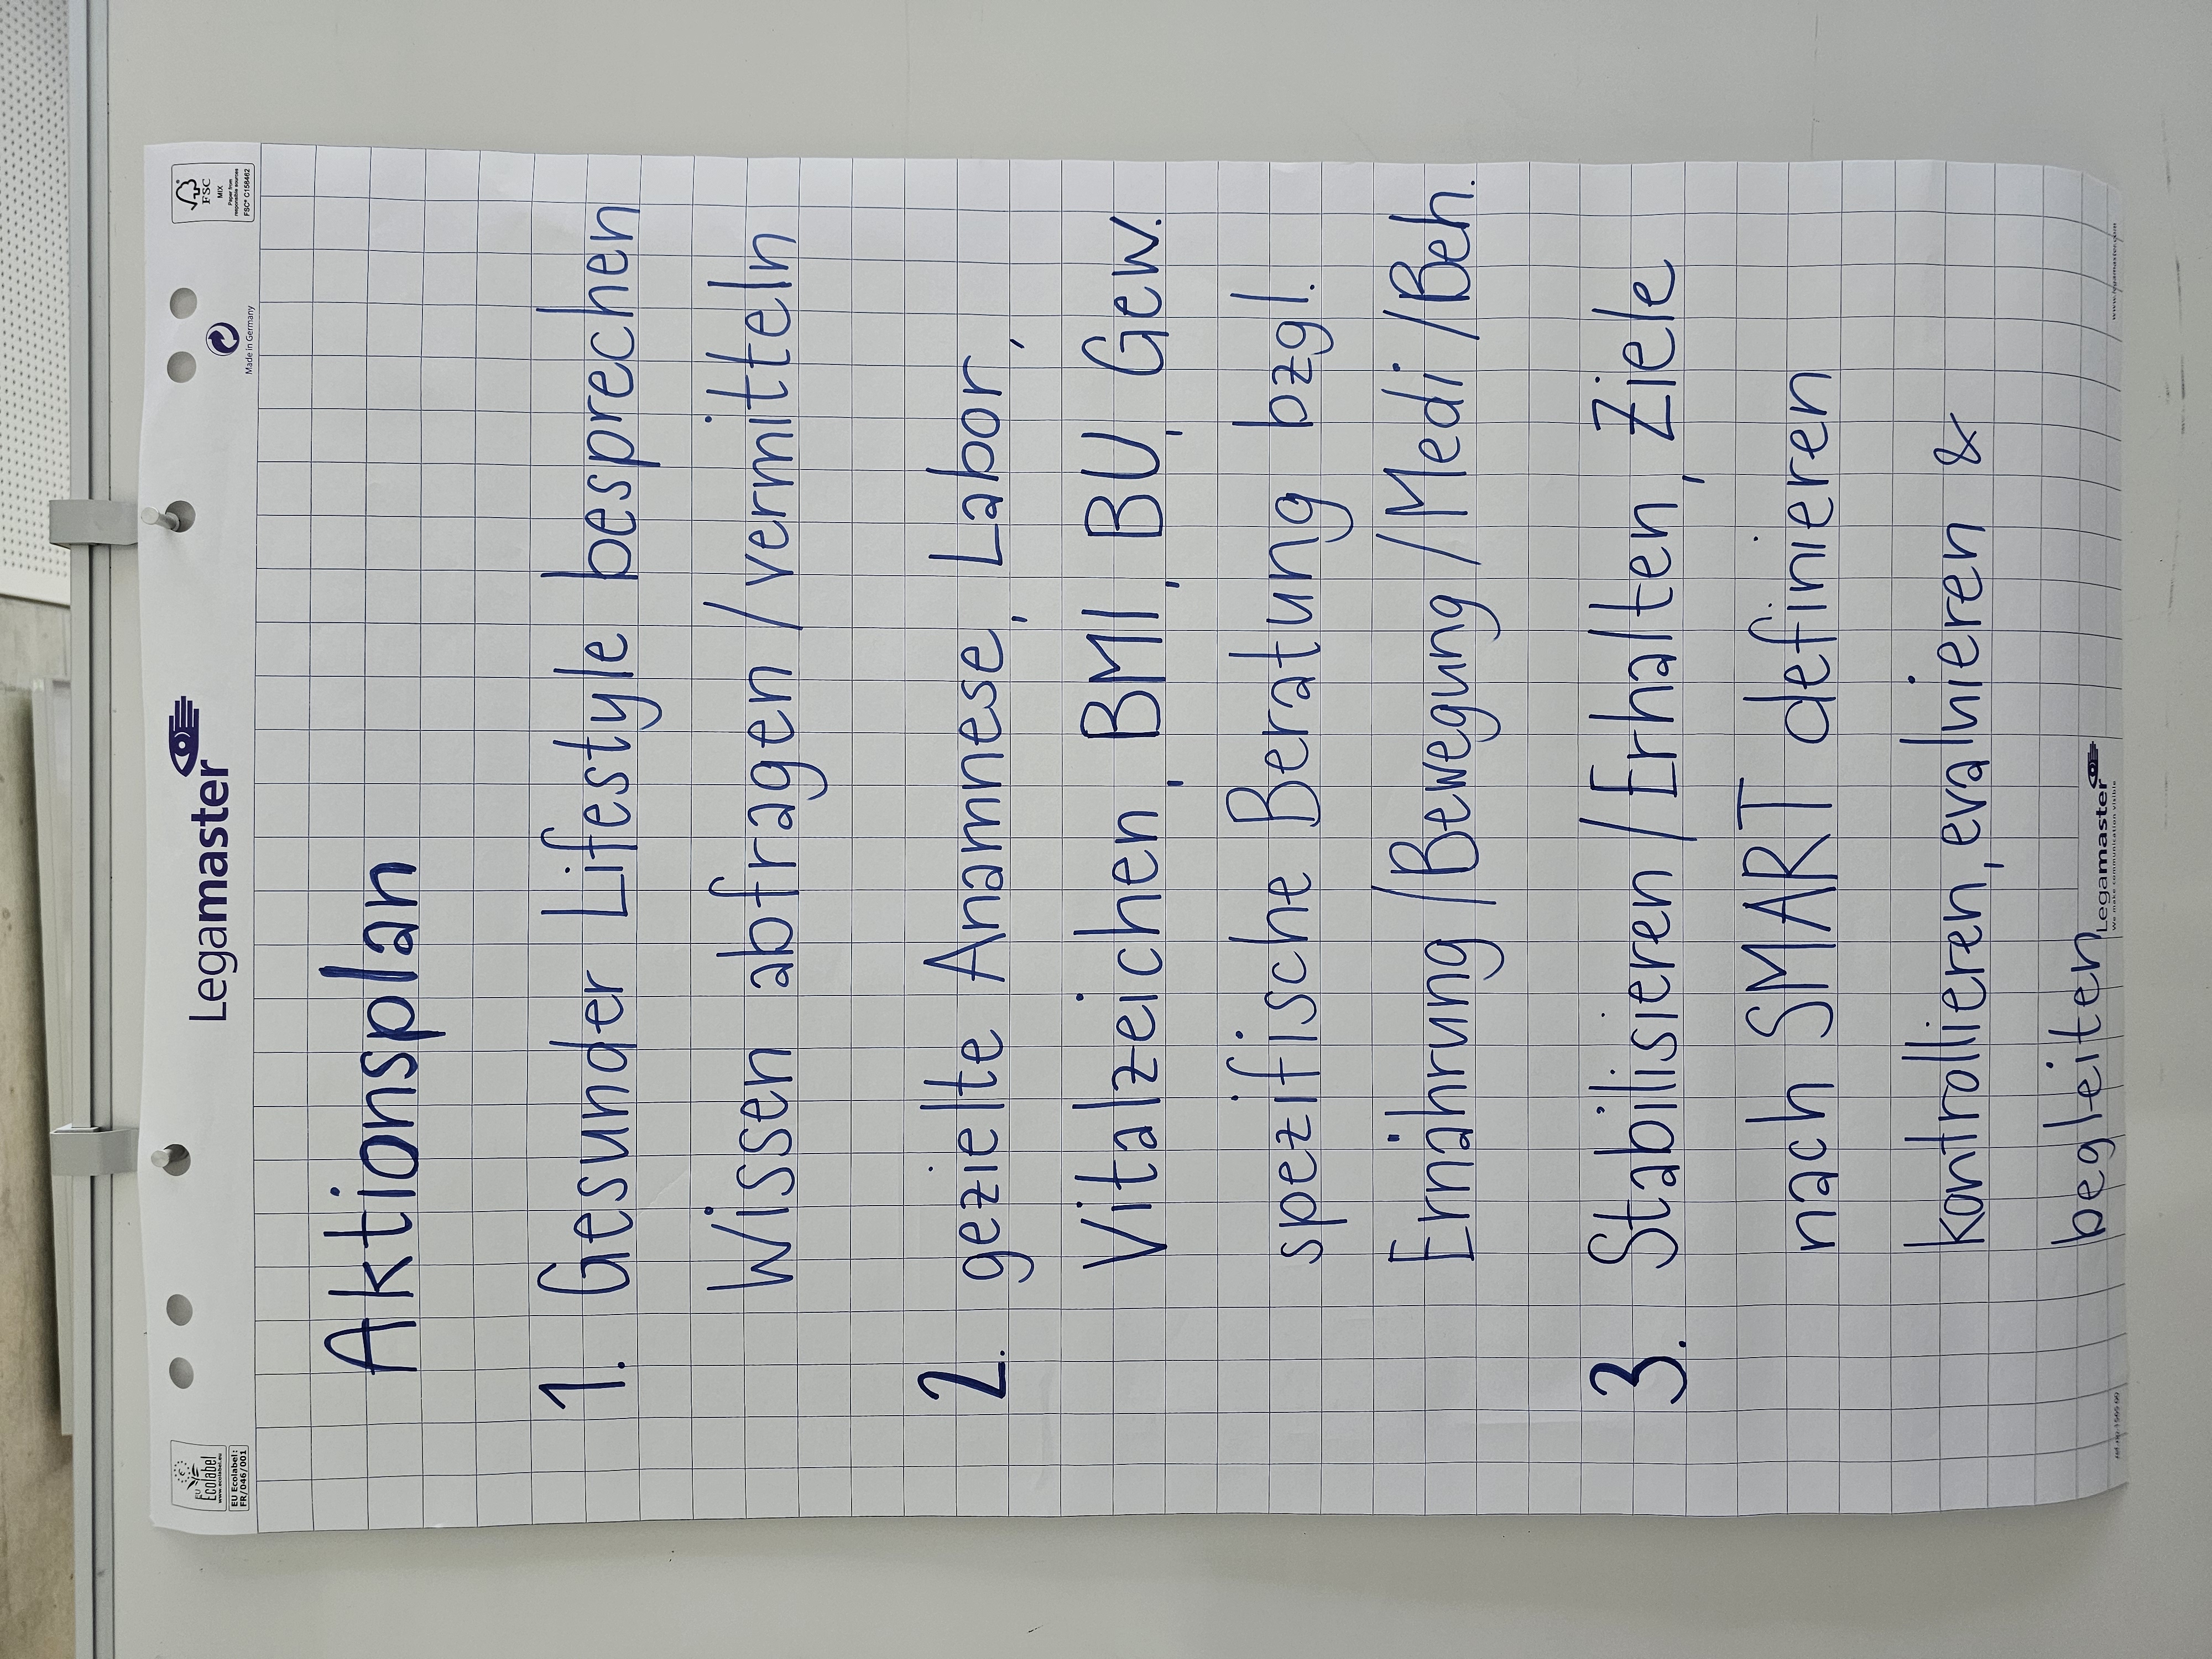 EU
Ecolabel
www.ecolabel.eu
EU Ecolabel:
FR/046/001
Legamaster
Made in Germany
FSC
MIX
Paper from
responsible sources
FSC® C158462
Aktionsplan
1. Gesunder Lifestyle besprechen
Wissen abfragen / vermitteln
2. gezielte Anamnese, Labor,
Vitalzeichen, BMI, BU, Gew.
spezifische Beratung bzgl.
Ernährung / Bewegung / Medi / Beh.
3. Stabillisieren / Erhalten, Ziele
nach SMART definieren
kontrollieren, evaluieren &
begleiten
Legamaster
We make communication visible
www.legamaster.com